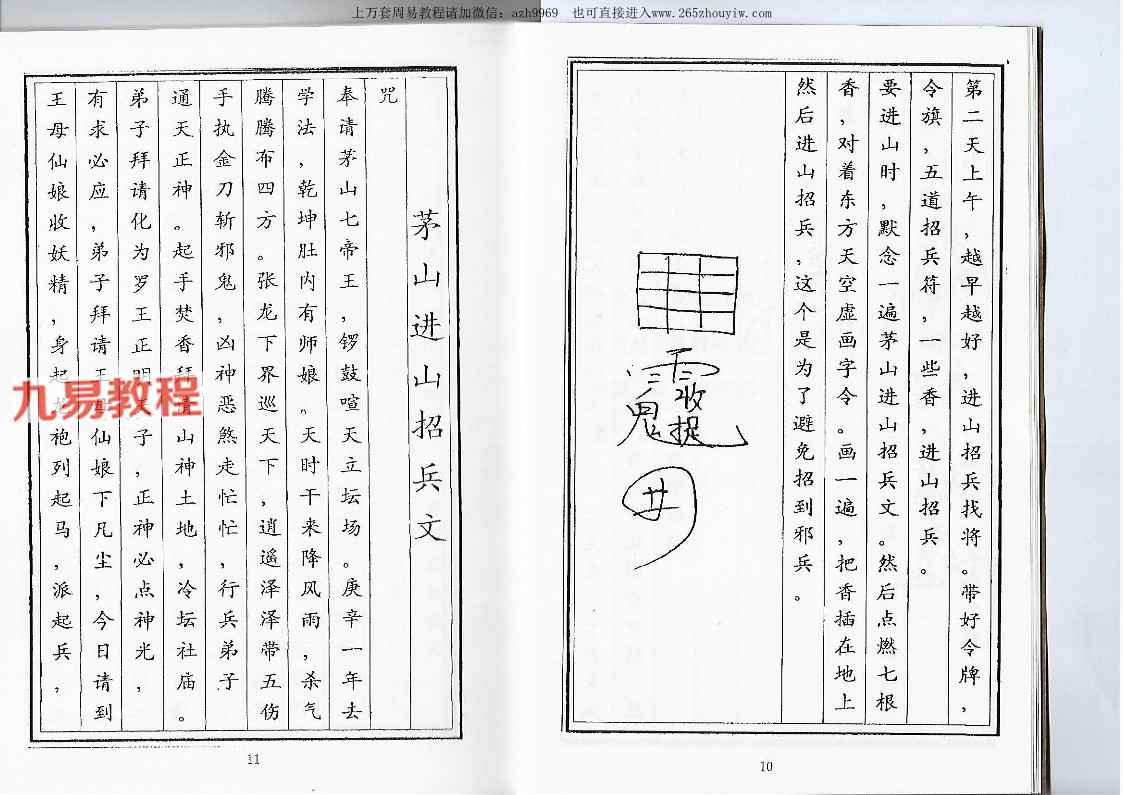 上万套周易教程请加微信：azh9969　也可直接进入www.265zhouyiw.com
第二天上午，越早越好，进山招兵找将。带好令牌，
令旗，五道招兵符，一些香，进山招兵。
要进山时，默念一遍茅山进山招兵文。然后点燃七根
香，对着东方天空虚画字令。画一遍，把香插在地上
然后进山招兵，这个是为了避免招到邪兵。
收
鬼捉
10
茅山进山招兵文
咒
奉请茅山七帝王，锣鼓喧天立坛场。庚辛一年去
学法，乾坤肚内有师娘。天时干来降风雨，杀气
腾腾布四方。张龙下界巡天下，逍遥泽泽带五伤
手执金刀斩邪鬼，凶神恶煞走忙忙，行兵弟子
通天正神。起手焚香拜请山神土地，冷坛社庙。
弟子拜请化为罗王正明天子，正神必点神光，
有求必应，弟子拜请王母仙娘下凡尘，今日请到
王母仙娘收妖精，身起龙袍列起马，派起兵，
11
九易教程